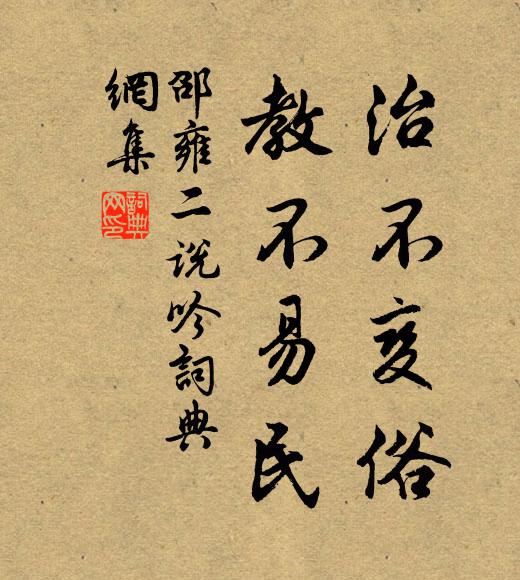 治不变俗
教不易民
邵雍二说吟詞典
網集
詞典網印